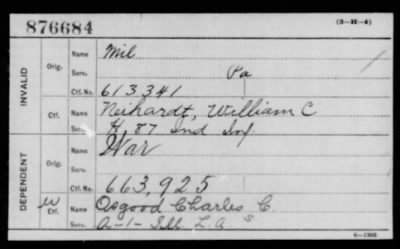 876684
(3-H-4)
INVALID
Orig.
Name Mil
Serv. Pa
Ctf. No. 613341
Ctf.
Name Neihardt, William C
Serv. H, 87 Ind Inf
DEPENDENT
Orig.
Name War
Serv.
Ctf. No. 663,925
W
Ctf.
Name Osgood Charles C.
Serv. A-1- Ill. L.A.